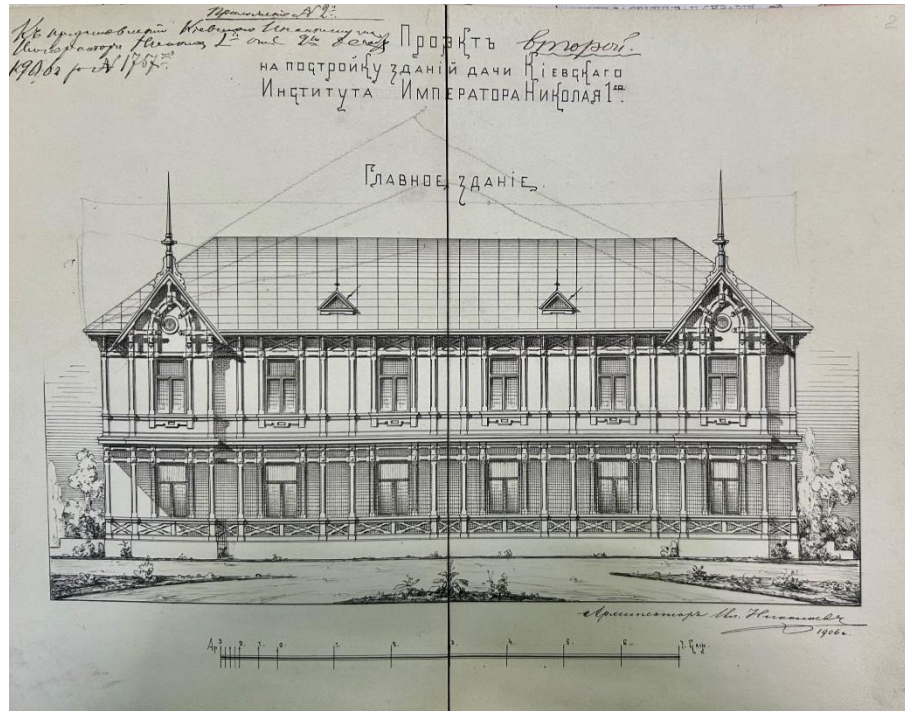 Приложеніе № 2ᵒ.
Къ представленію Кіевскаго Института
Императора Николая Iᵒ отъ 9ᵒ
1906 г. за № 1757
2
Проэктъ второй.
на постройку зданій дачи Кіевскаго
Института Императора Николая 1ᵍᵒ.
Главное зданіе.
Архитекторъ Ил. Николаевъ
1906 г.
Ар. 3 2. 1. 0. 1. 2. 3. 4. 5. 6. 7. Саж.